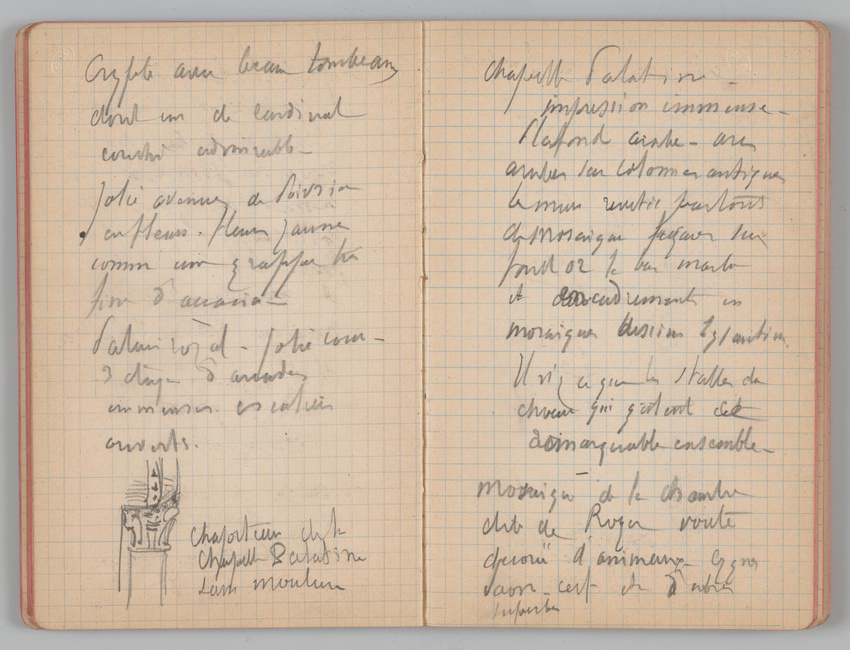 Crypte avec beaux tombeaux
dont un de cardinal
couché admirable -
Jolie avenue de
en fleurs. fleur jaune
comme une grappe très
fine d'acacia -
Palais royal - Jolie cour -
3 étages d'arcades
immenses escaliers
ouverts.
de la
Chapelle Palatine
sans moulure
Chapelle Palatine -
impression immense -
Plafond arabe - arcs
arabes sur colonnes antiques
le mur revêtu partout
de mosaique figures sur
fond or le bas marbre
et encadrements en
mosaiques dessins byzantins.
Il n'y a que les stalles du
choeur qui gâtent cet
remarquable ensemble -
mosaique de la chambre
dite de Roger voute
décorée d'animaux cygnes
paons - cerf et d'arbres
superbe